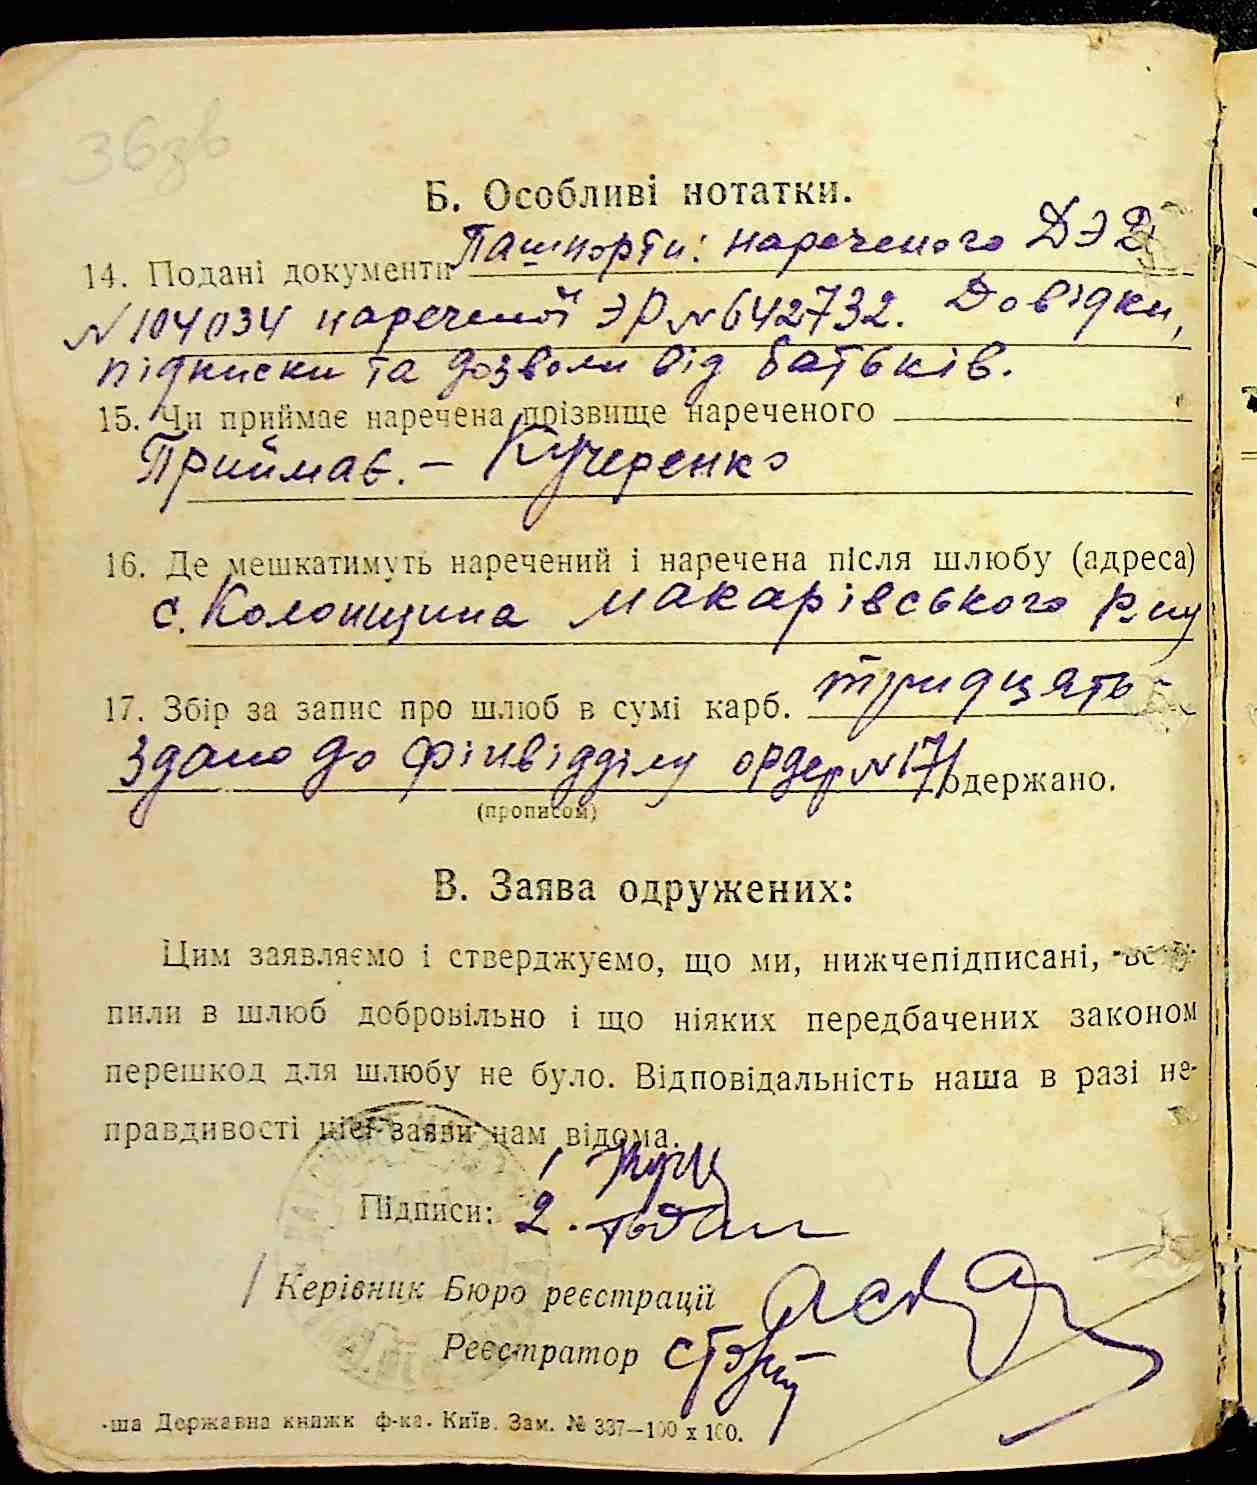 36зв
Б. Особливі нотатки.
14. Подані документи Пашпорти: нареченого ДЭД
N 104034 нареченої ЭР N 642732. Довідки,
підписки та дозволи від батьків.
15. Чи приймає наречена прізвище нареченого
Приймає. – Кучеренко
16. Де мешкатимуть наречений і наречена після шлюбу (адреса)
с. Колонщина Макарівського р-ну
17. Збір за запис про шлюб в сумі карб. тридцять-
Здано до фінвідділу ордер N 171 одержано.
(прописом)
В. Заява одружених:
Цим заявляємо і стверджуємо, що ми, нижчепідписані, всту-
пили в шлюб добровільно і що ніяких передбачених законом
перешкод для шлюбу не було. Відповідальність наша в разі не-
правдивості цієї заяви нам відома.
1
Підписи: 2.
Керівник Бюро реєстрації
Реєстратор
-ша Державна книжк ф-ка. Київ. Зам. № 337—100 х 100.